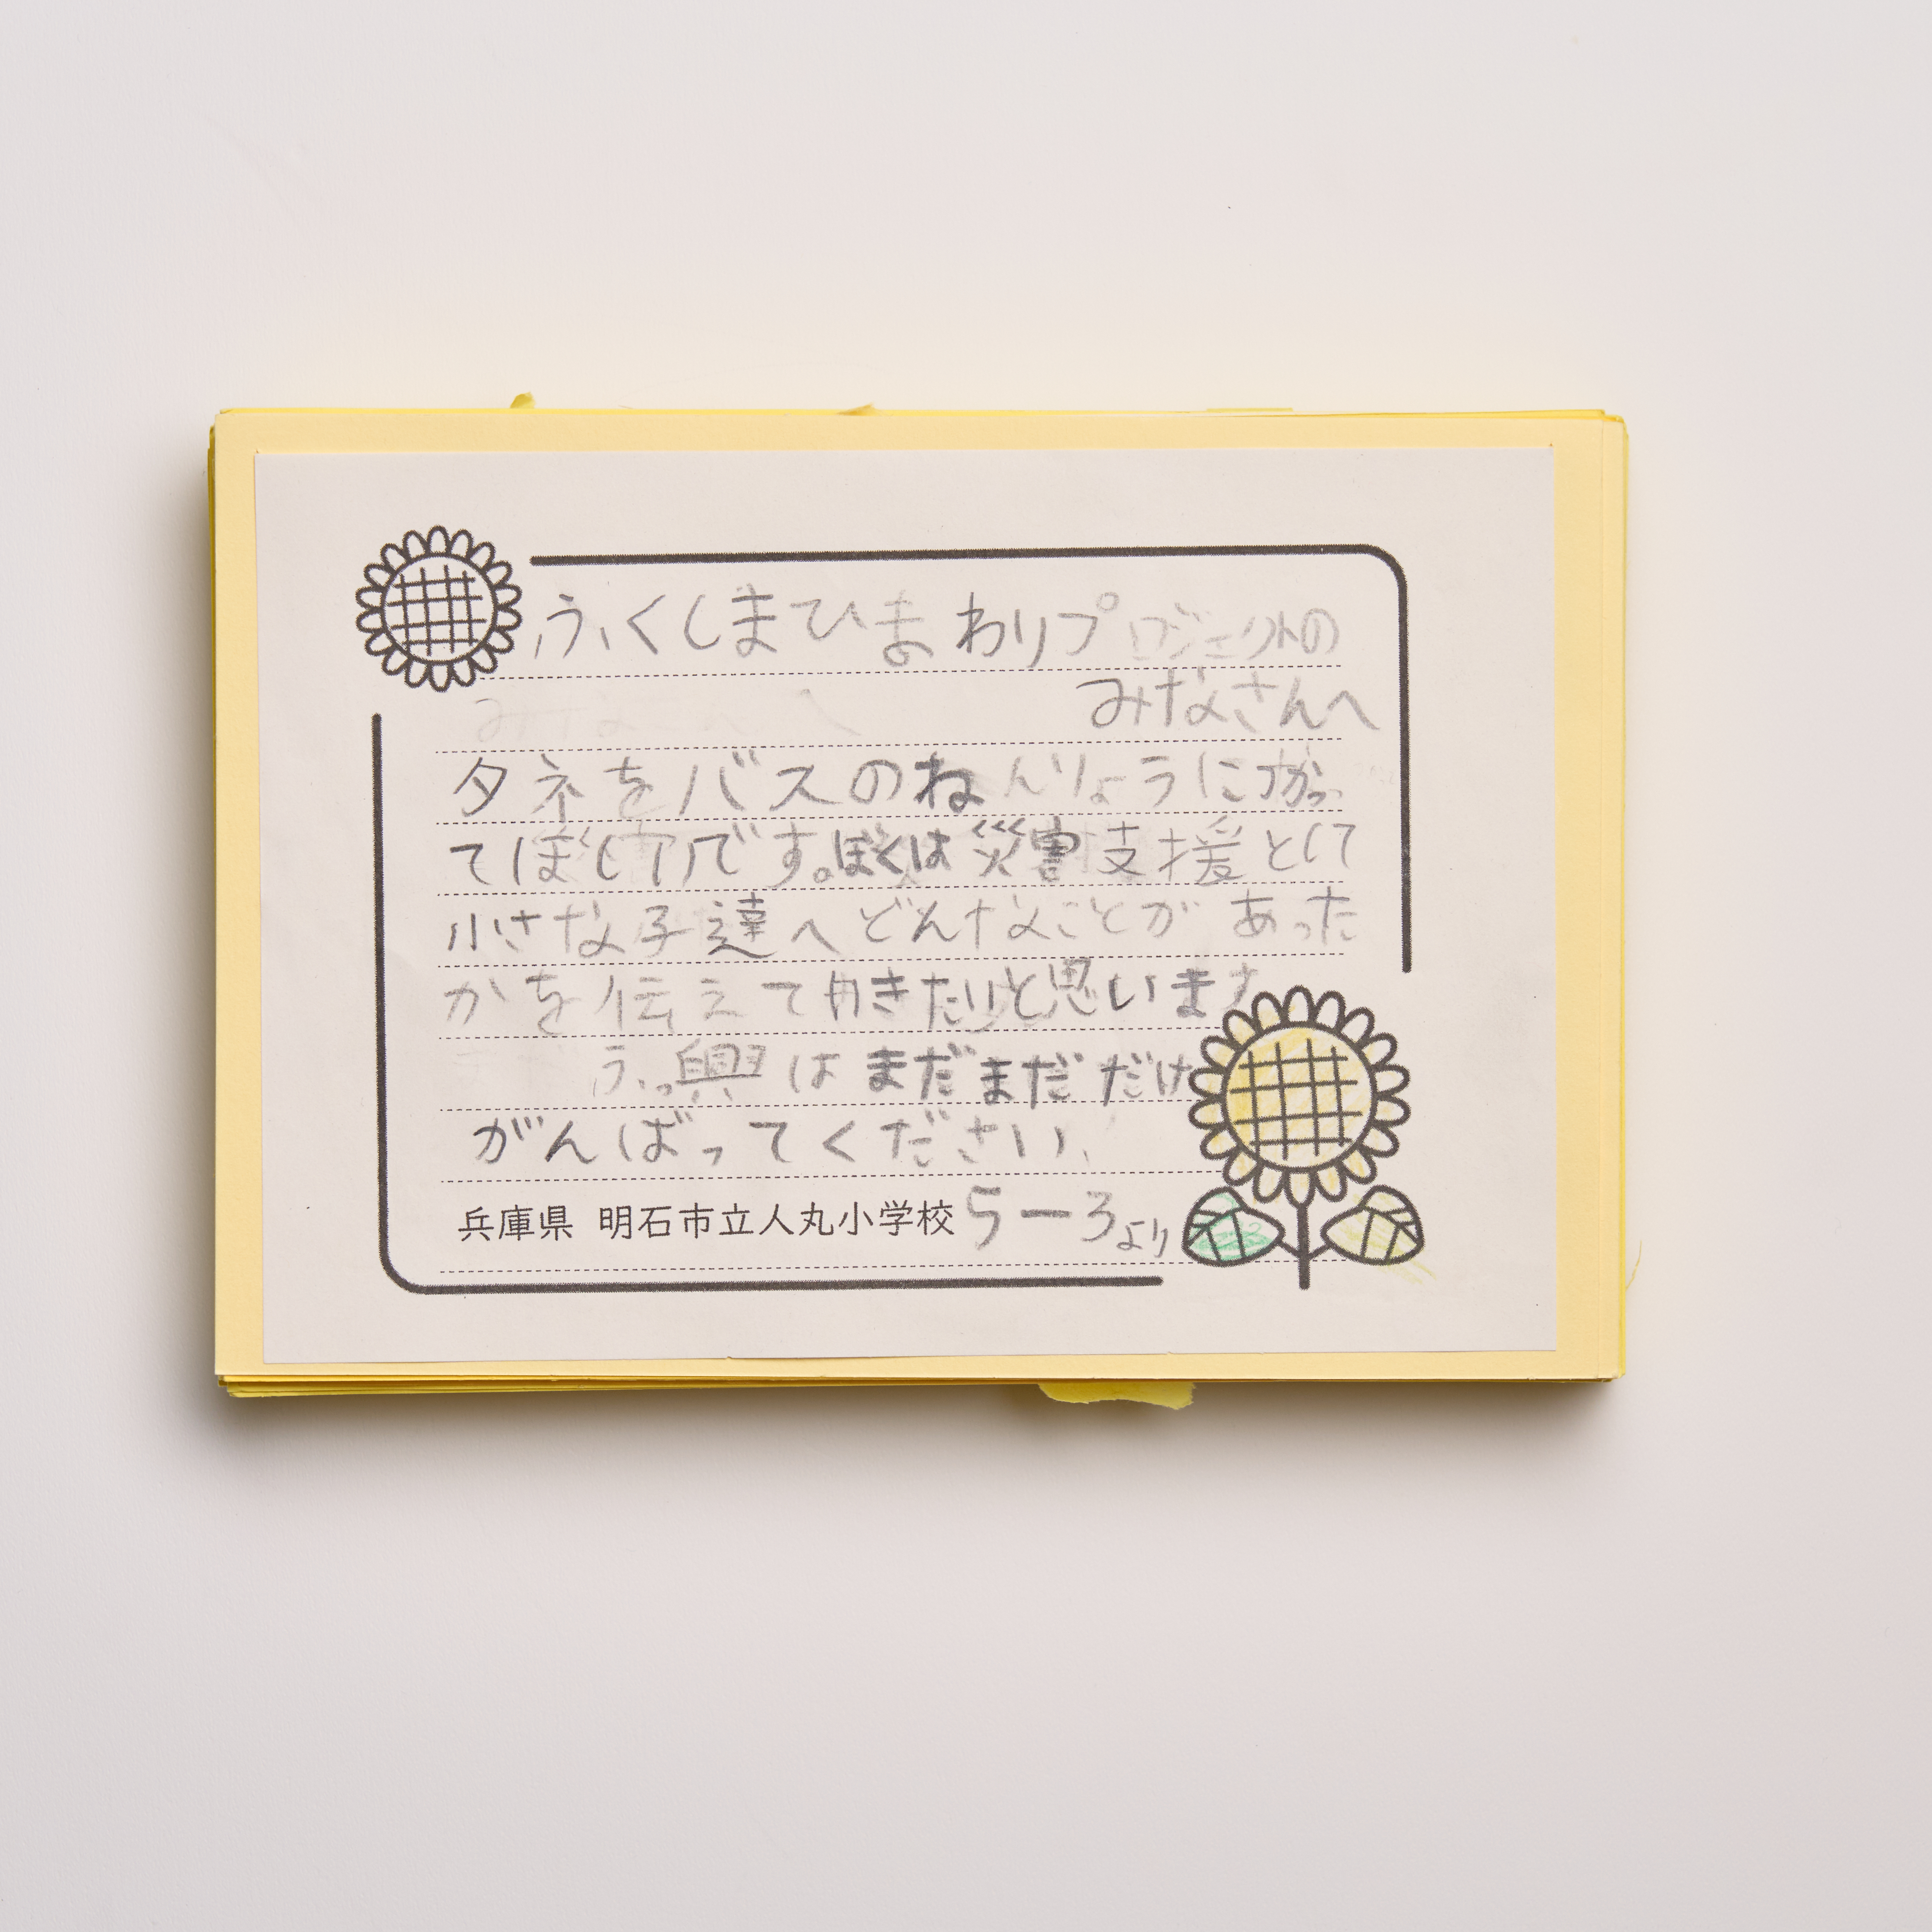 ふくしまひまわりプロジェクトの
みなさんへ
タネをバスのねんりょうにつかっ
てほしいです。ぼくは災害支援として
小さな子達へどんなことがあった
かを伝えて行きたいと思います
ふっ興はまだまだだけど
がんばってください。
兵庫県 明石市立人丸小学校5-3より